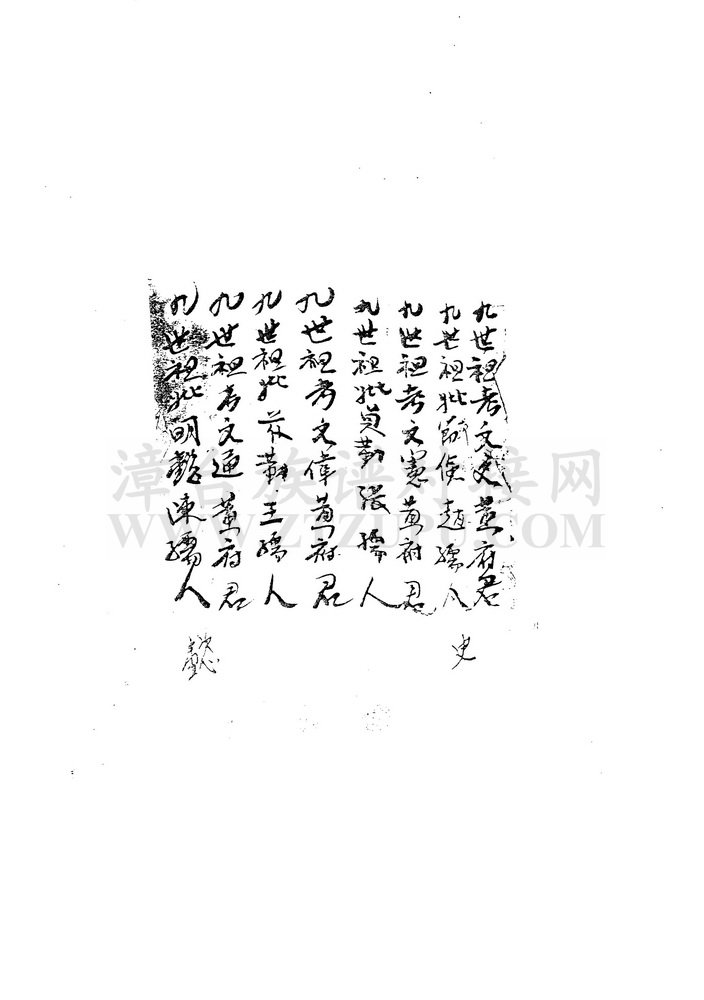 九世祖考文史黄府君
九世祖妣節儉趙孺人
九世祖考文憲黄府君
九世祖妣貞勤張孺人
九世祖考文偉黄府君
九世祖妣王孺人
九世祖考文通黄府君
九世祖妣明懿陳孺人
史
懿
漳台族谱对接网
WWW.ZTZUPU.COM